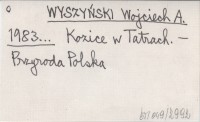 WYSZYŃSKI Wojciech A.
1983... Kozice w Tatrach. —
Przyroda Polska